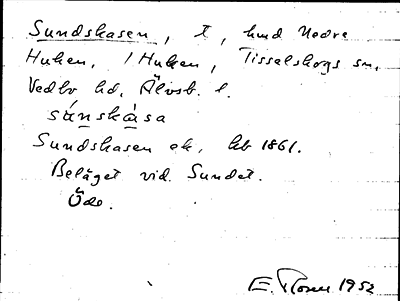 Sundskasen, t, hmd Nedre
Huken, /Huken, Tisselskogs sn,
Vedbo hd, Älvsb. l.
sánskàsa
Sundskasen ek, kb 1861.
Beläget vid Sundet.
Öde.
E. 1952